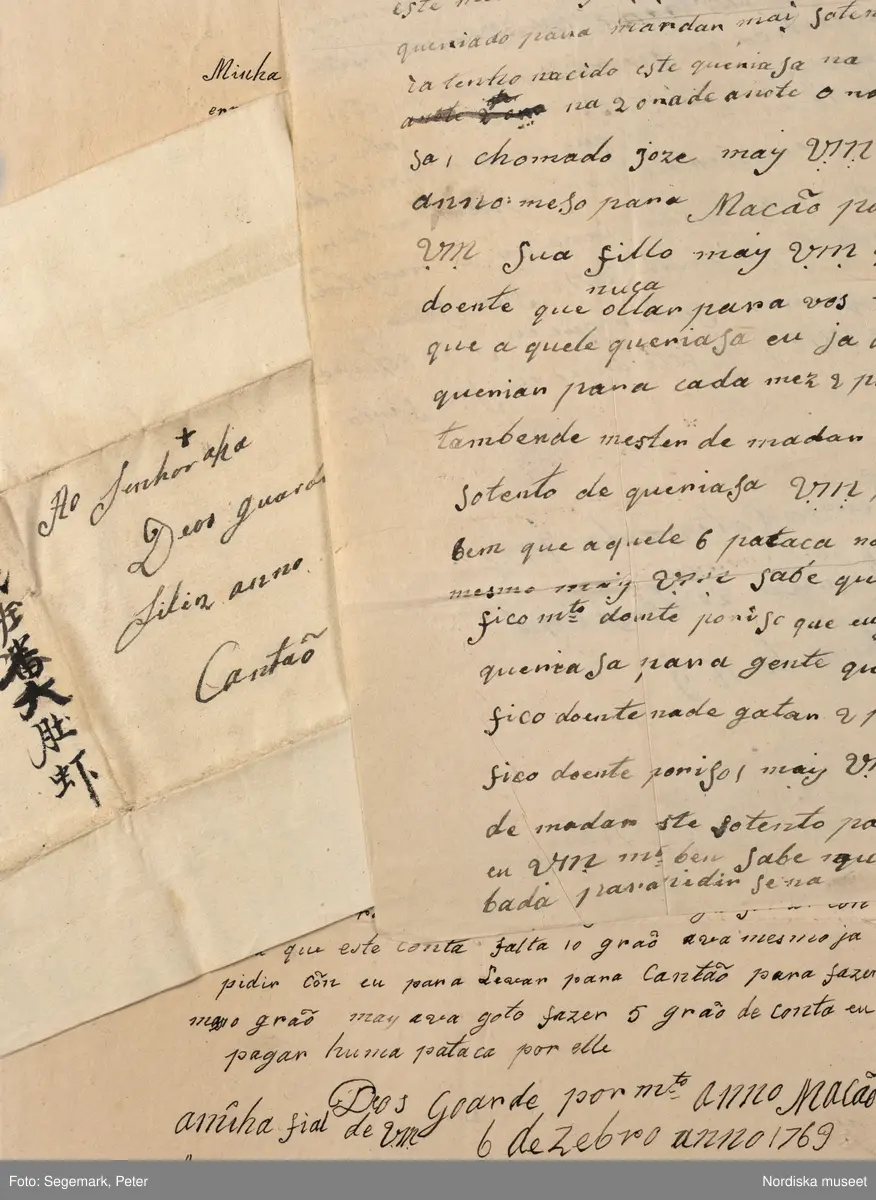 Minha
queriado para mandar may soten
ra tenho nacido este queriasa na
na 2 ora de anote o no
sa, chomado joze may VM
anno meso para Macão pa
VM sua fillo may VM
nuca
doente que ollar para vos
que a quele queriasa eu ja
querian para cada mez 2 p
tambende mester de madar
sotento de queriasa VM
bem que aquele 6 pataca na
mesmo may VM sabe qu
fico mto donte poriso que eu
queriasa para gente qu
fico doente nade gatar 2 p
fico doente poriso, may V
de madar ste sotento pa
eu VM mto ben sabe que
bada para pidir se na
+
Ao Senhor afta
Deos guard
filiz anno
Cantaõ
番大肚虾
que este conta falta 10 graõ ava mesmo ja
pidir cõn eu para Levar para Cantaõ para fazer
mesmo graõ may ava goto fazer 5 graõ de conta eu
pagar huma pataca por elle
Deos Goarde por mto anno Macaõ
amiha fial de VM 6 de Zebro anno 1769
Foto: Segemark, Peter
Nordiska museet